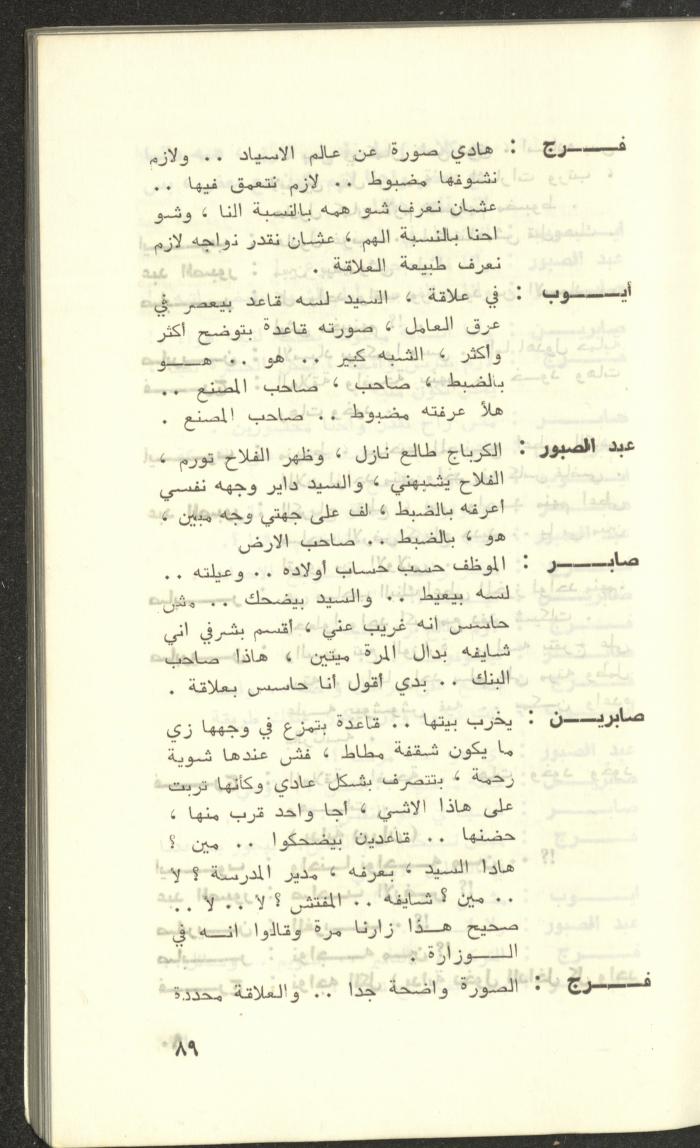 فــــرج : هادي صورة عن عالم الاسياد .. ولازم
نشوفها مضبوط .. لازم نتعمق فيها ..
عشان نعرف شو همه بالنسبة النا ، وشو
احنا بالنسبة الهم ، عشان نقدر نواجه لازم
نعرف طبيعة العلاقة .
أيــــوب : في علاقة ، السيد لسه قاعد بيعصر في
عرق العامل ، صورته قاعدة بتوضح أكثر
وأكثر ، الشبه كبير .. هو .. هـــو
بالضبط ، صاحب ، صاحب المصنع ..
هلأ عرفته مضبوط .. صاحب المصنع .
عبد الصبور : الكرباج طالع نازل ، وظهر الفلاح تورم ،
الفلاح يشبهني ، والسيد داير وجهه نفسي
أعرفه بالضبط ، لف على جهتي وجه مبين ،
هو ، بالضبط .. صاحب الارض
صابــــر : الموظف حسب حساب أولاده .. وعيلته ..
لسه بيعيط .. والسيد بيضحك .. مش
حاسس انه غريب عني ، أقسم بشرفي اني
شايفه بدال المرة ميتين ، هاذا صاحب
البنك .. بدي أقول أنا حاسس بعلاقة .
صابريــــن : يخرب بيتها .. قاعدة بتمزع في وجهها زي
ما يكون شقفة مطاط ، فش عندها شوية
رحمة ، بتتصرف بشكل عادي وكأنها تربت
على هاذا الاشي ، أجا واحد قرب منها ،
حضنها .. قاعدين بيضحكوا .. مين ؟
هاذا السيد ، بعرفه ، مدير المدرسة ؟ لا
.. مين ؟ شايفه .. المفتش ؟ لا .. لا ..
صحيح هــذا زارنا مرة وقالوا انــه في
الــــوزارة .
فــــرج : الصورة واضحة جدا .. والعلاقة محددة
٨٩